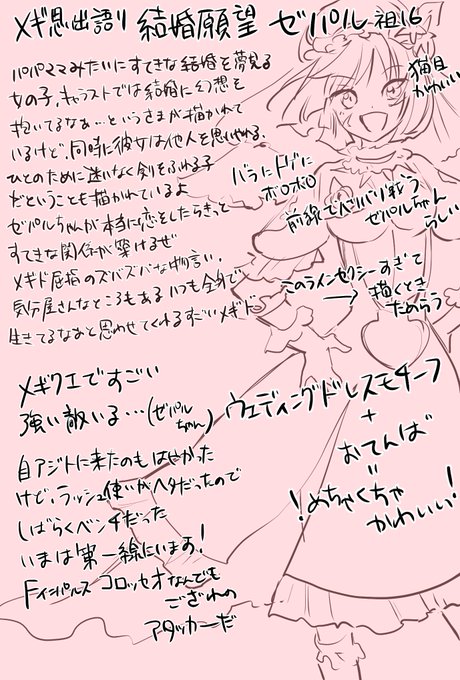 メギ思出語り 結婚願望 ゼパル 祖16
パパママみたいにすてきな結婚を夢見る
女の子、キャラストでは結婚に幻想を
抱いてるなぁ…というさまが描かれて
いるけど、同時に彼女は他人を思いやれる、
ひとのために迷いなく剣をふれる子
だということも描かれているよ
ゼパルちゃんが本当に恋をしたらきっと
すてきな関係が築けるぜ
メギド屈指のズバズバな物言い、
気分屋さんなところもある いつも全力で
生きてるなぁと思わせてくれるすごいメギド
猫目
かわいい
バラバラに
ボロボロ
前線でバリバリ戦う
ゼパルちゃん
らしい
このラインセクシーすぎて
→ 描くとき
ためらう
メギクエですごい
強い敵いる…(ゼパルちゃん)
ウェディングドレスモチーフ
+
おてんば
=
!めちゃくちゃ
かわいい!
自アジトに来たのもはやかった
けど、ラッシュ使いがヘタだったので
しばらくベンチだった
いまは第一線にいます!
Fインパルス コロッセオなんでも
ござれの
アタッカーだ